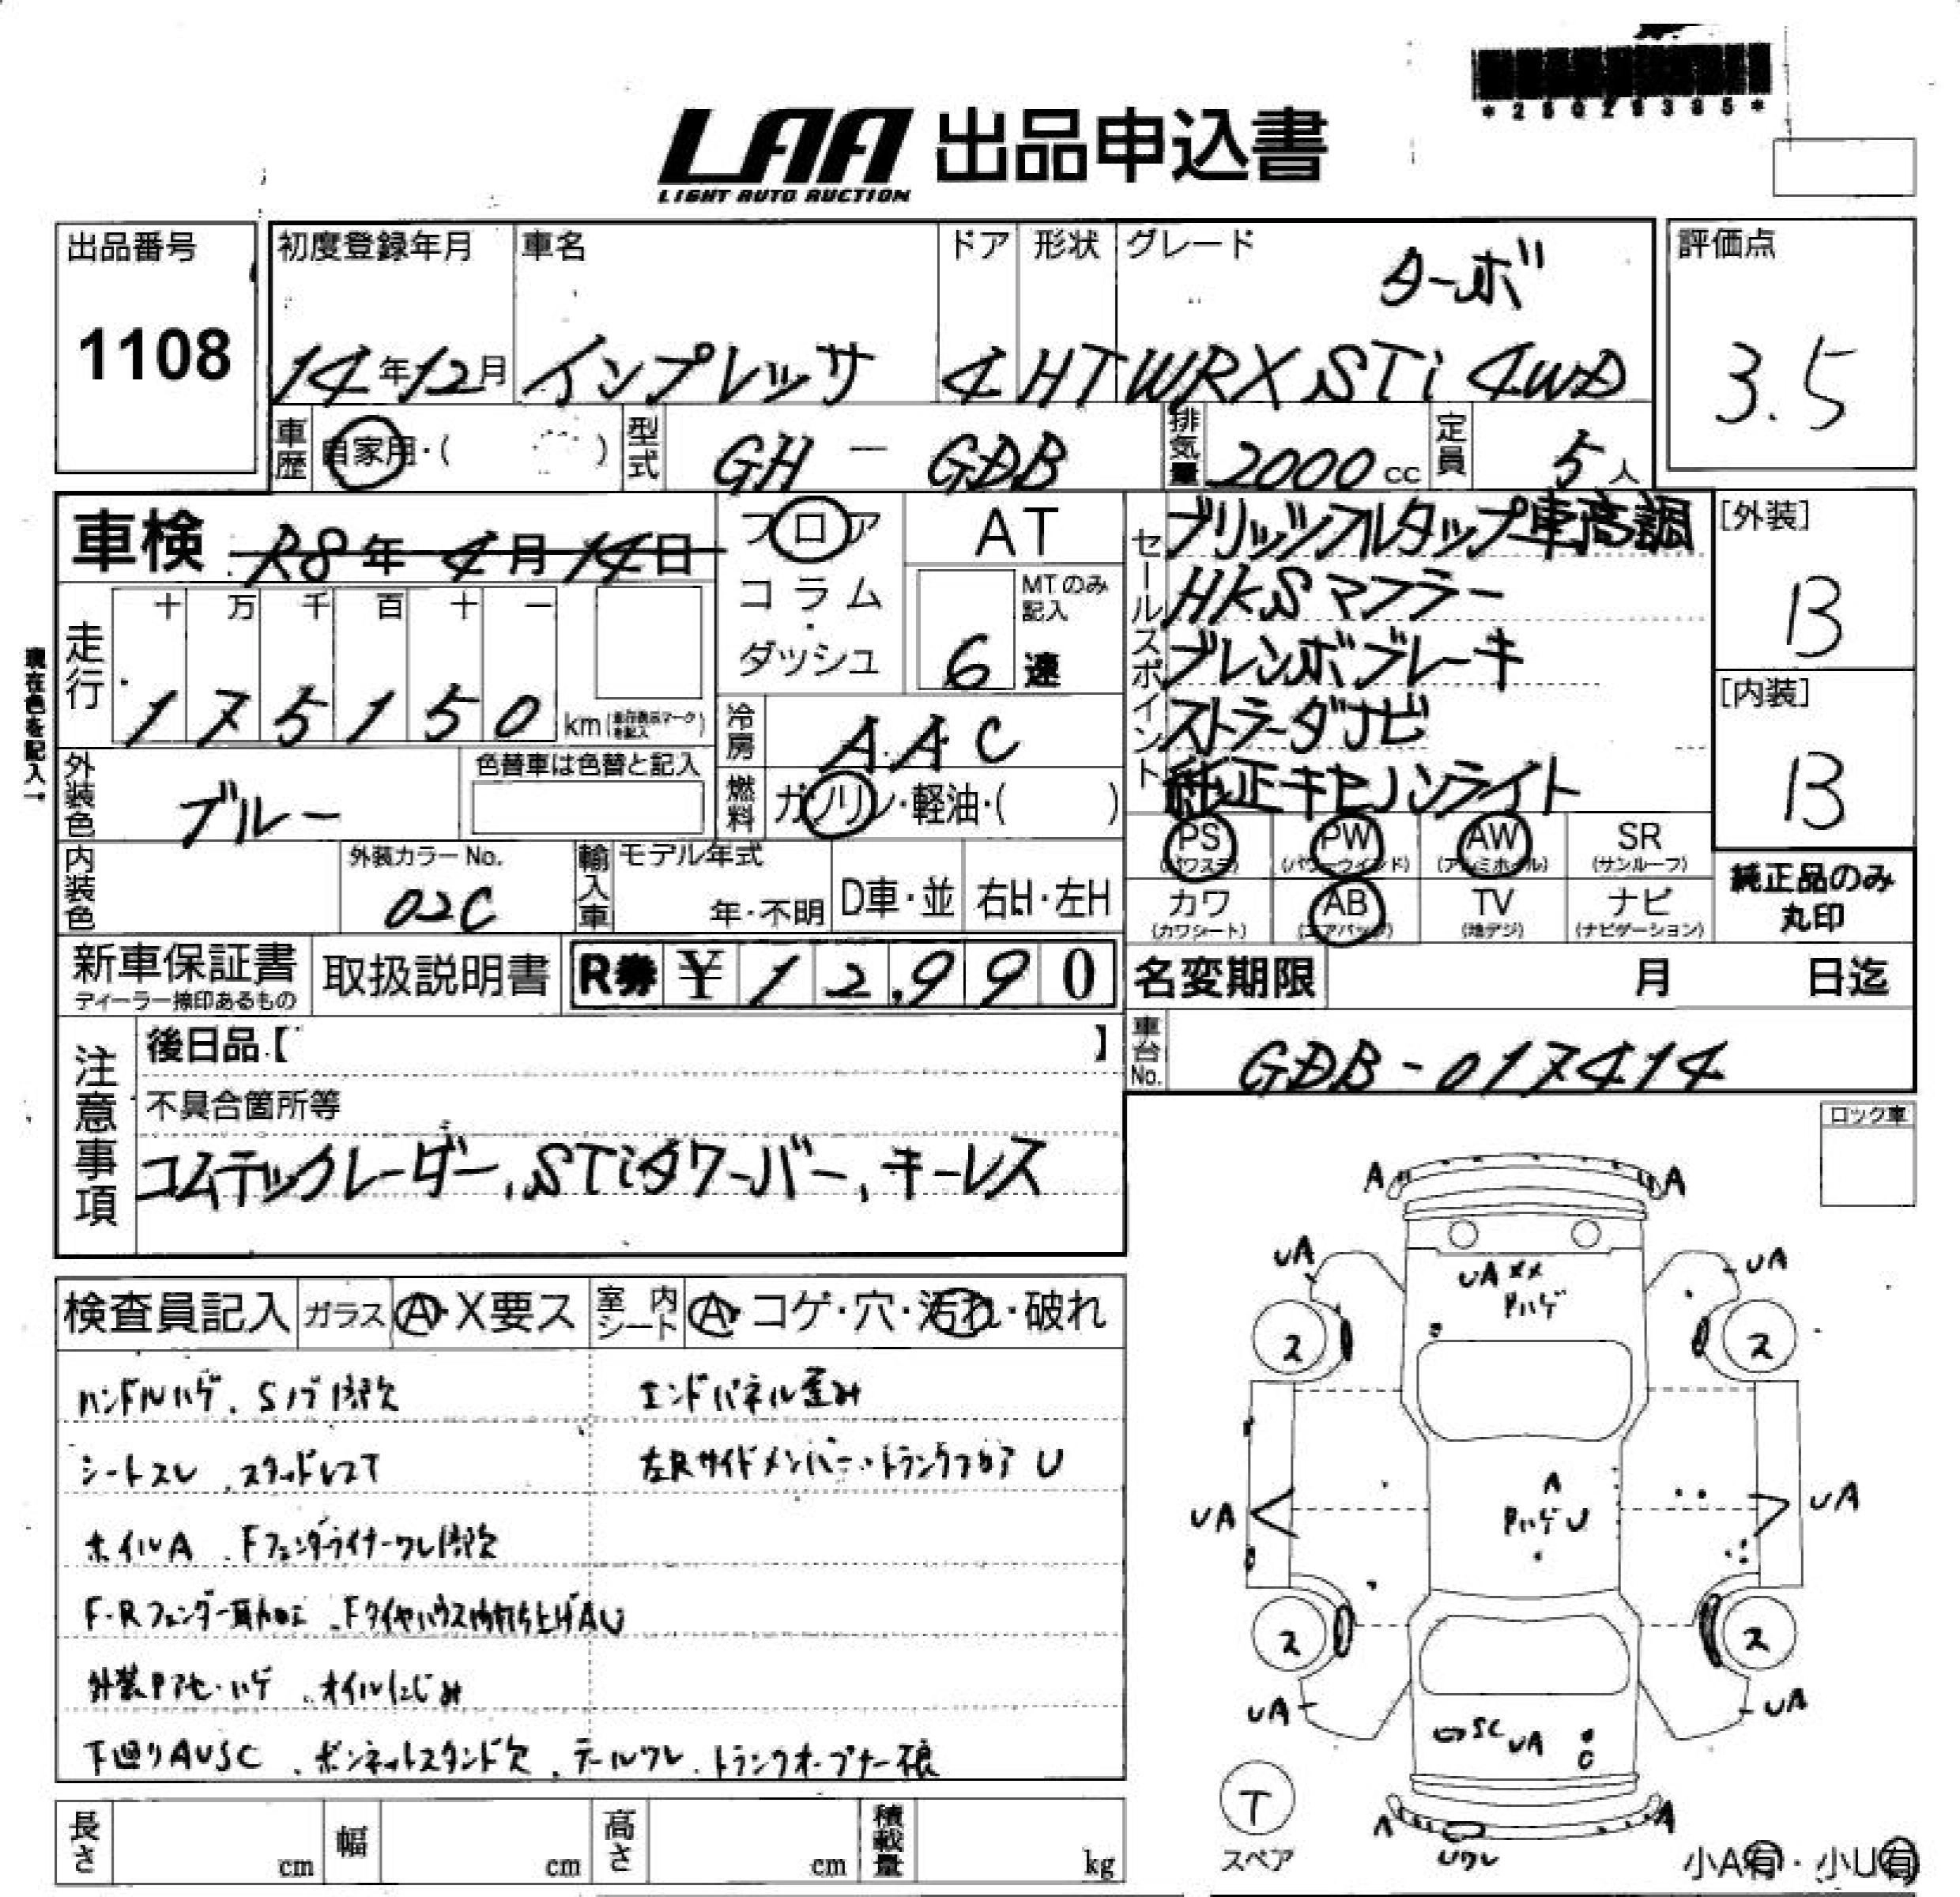 LAA 出品申込書
LIGHT AUTO AUCTION
出品番号
1108
初度登録年月
14年12月
車名
インプレッサ
ドア
4
形状
HT
グレード
ターボ
WRX STi 4WD
評価点
3.5
車歴
自家用・( )
型式
GH - GDB
排気量
2000cc
定員
5人
車検 R8年4月14日
フロア
コラム・
ダッシュ
AT
MTのみ記入
6速
走行
十 万 千 百 十 一
175150 km
現在色を記入
冷房
AAC
外装色
ブルー
色替車は色替と記入
燃料
ガソリン・軽油・( )
内装色
外装カラーNo.
02C
輸入車
モデル年式
年・不明
D車・並
右H・左H
セールスポイント
ブリッツフルタップ車高調
HKSマフラー
ブレンボブレーキ
ストラーダナビ
純正キセノンライト
[外装]
B
[内装]
B
PS (パワステ)
PW (パワーウィンド)
AW (アルミホイル)
SR (サンルーフ)
カワ (カワシート)
AB (エアバッグ)
TV (地デジ)
ナビ (ナビゲーション)
純正品のみ
丸印
新車保証書
ディーラー捺印あるもの
取扱説明書
R券 ¥12,990
名変期限 月 日迄
車台No.
GDB-017414
注意事項
後日品【 】
不具合箇所等
コムテックレーダー,STiタワーバー,キーレス
ロック車
検査員記入
ガラス Ⓐ・X要ス
室内シート Ⓐ・コゲ・穴・汚れ・破れ
ハンドルハゲ、Sノブ部欠
エンドパネル歪み
シートスレ、スタッドレスT
左Rサイドメンバー・トランクフロアU
ホイルA、Fフェンダーライナーワレ部欠
F・Rフェンダー耳加工、Fタイヤハウス内打ち上げAU
外装Pアセ・ハゲ、オイルにじみ
下廻りAUSC、ボンネットスタンド欠、テールワレ、トランクオープナー不良
A A
UA UA
UA XX
Pハゲ
2 2
A
UA PハゲU UA
2 2
UA UA
SC UA
T
スペア
A A
Uワレ
小A有・小U有
長さ cm
幅 cm
高さ cm
積載量 kg